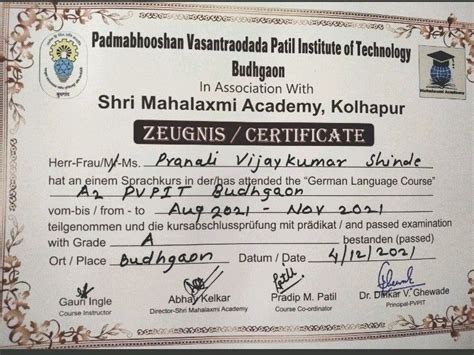 Padmabhooshan Vasantraodada Patil Institute of Technology
Budhgaon
In Association With
Shri Mahalaxmi Academy, Kolhapur
ZEUGNIS / CERTIFICATE
Herr-Frau/Mr-Ms. Pranali Vijaykumar Shinde
hat an einem Sprachkurs in der/bas attended the "German Language Course"
A2 PVPIT Budhgaon
vom-bis / from - to Aug 2021 - Nov 2021
teilgenommen und die kursabschlussprüfung mit prädikat / and passed examination
with Grade A bestanden (passed)
Ort / Place Budhgaon Datum / Date 4/12/2021
Gauri Ingle Abhay Kelkar Pradip M. Patil Dr. Dinkar V. Ghewade
Course Instructor Director-Shri Mahalaxmi Academy Course Co-ordinator Principal-PVPIT